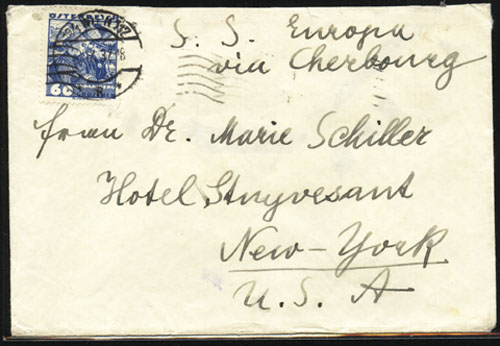 ÖSTERREICH
60
S. S. Europa
via Cherbourg
Frau Dr. Marie Schiller
Hotel Stuyvesant
New-York
U. S. A